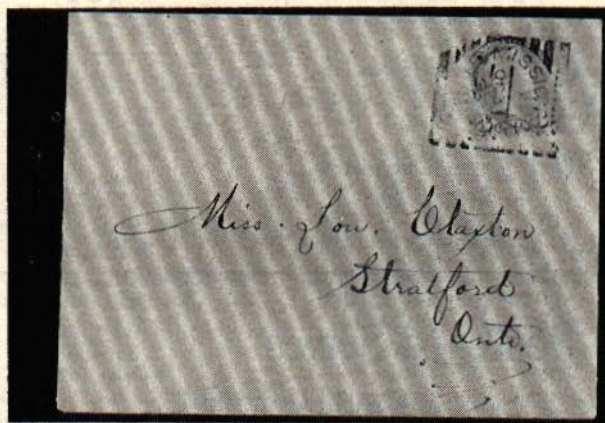 Miss. Lou. Claxton
Stratford
Ont.